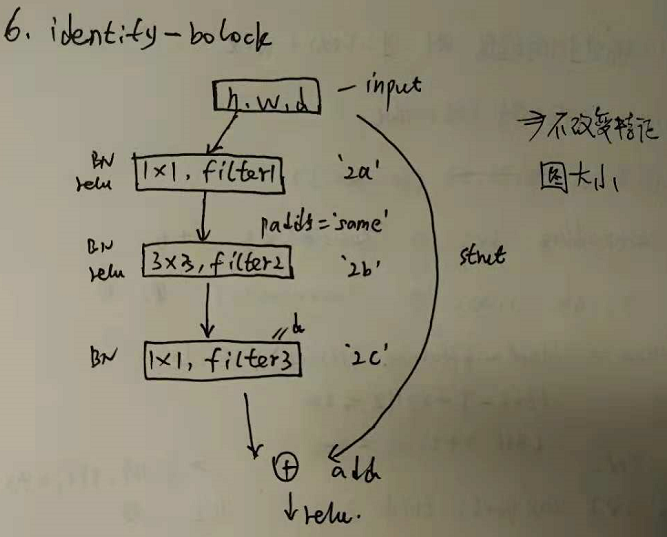 6. identify-bolock
h.w.d — input
⇒不改变特征
图大小
BN
relu
1×1, filter1
'2a'
padds='same'
BN
relu
3×3, filter2
'2b'
strut
d
BN
1×1, filter3
'2c'
⊕ add
↓relu.